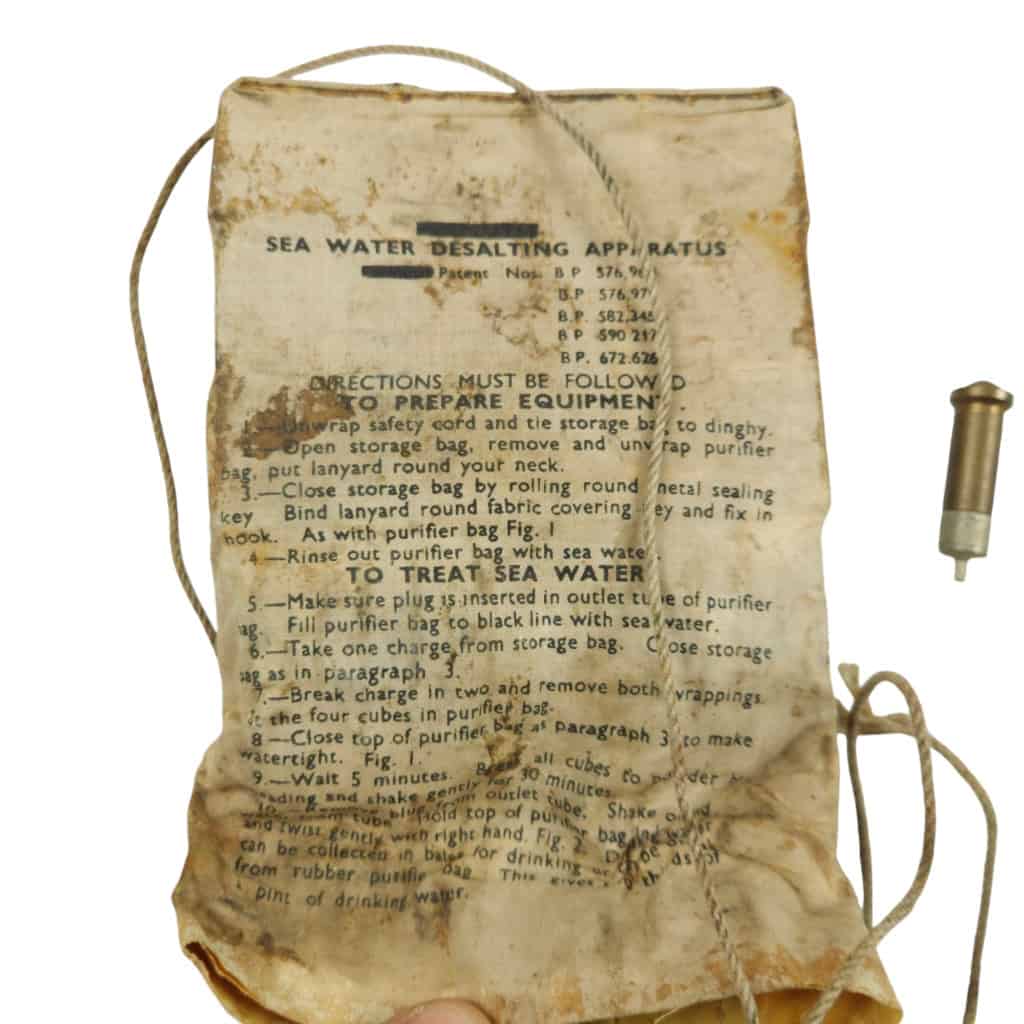 SEA WATER DESALTING APPARATUS
Patent Nos. B P 576,96
B.P. 576,97
B.P. 582,346
B P 590 217
B P. 672.626
DIRECTIONS MUST BE FOLLOW D
TO PREPARE EQUIPMEN
1.—Unwrap safety cord and tie storage bag to dinghy.
2.—Open storage bag, remove and unwrap purifier
bag, put lanyard round your neck.
3.—Close storage bag by rolling round metal sealing
key Bind lanyard round fabric covering key and fix in
hook. As with purifier bag Fig. 1
4.—Rinse out purifier bag with sea water.
TO TREAT SEA WATER
5.—Make sure plug is inserted in outlet tube of purifier
ag. Fill purifier bag to black line with sea water.
6.—Take one charge from storage bag. Close storage
bag as in paragraph 3.
7.—Break charge in two and remove both wrappings.
the four cubes in purifier bag.
8—Close top of purifier bag as paragraph 3 to make
watertight. Fig. 1.
9.—Wait 5 minutes. Break all cubes to powder
and shake gently for 30 minutes.
from outlet tube. Shake
tube hold top of purifier bag
and twist gently with right hand. Fig. 2.
can be collected in for drinking
from rubber purifier bag. This gives
pint of drinking water.